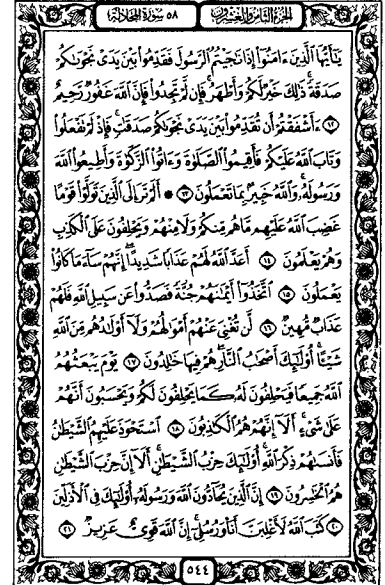 الجزء الثامن والعشرون ٥٨ سورة المجادلة
يَـٰٓأَيُّهَا ٱلَّذِينَ ءَامَنُوٓا۟ إِذَا نَـٰجَيْتُمُ ٱلرَّسُولَ فَقَدِّمُوا۟ بَيْنَ يَدَىْ نَجْوَىٰكُمْ
صَدَقَةً ۚ ذَٰلِكَ خَيْرٌ لَّكُمْ وَأَطْهَرُ ۚ فَإِن لَّمْ تَجِدُوا۟ فَإِنَّ ٱللَّهَ غَفُورٌ رَّحِيمٌ
١٢ ءَأَشْفَقْتُمْ أَن تُقَدِّمُوا۟ بَيْنَ يَدَىْ نَجْوَىٰكُمْ صَدَقَـٰتٍ ۚ فَإِذْ لَمْ تَفْعَلُوا۟
وَتَابَ ٱللَّهُ عَلَيْكُمْ فَأَقِيمُوا۟ ٱلصَّلَوٰةَ وَءَاتُوا۟ ٱلزَّكَوٰةَ وَأَطِيعُوا۟ ٱللَّهَ
وَرَسُولَهُۥ ۚ وَٱللَّهُ خَبِيرٌۢ بِمَا تَعْمَلُونَ ١٣ ۞ أَلَمْ تَرَ إِلَى ٱلَّذِينَ تَوَلَّوْا۟ قَوْمًا
غَضِبَ ٱللَّهُ عَلَيْهِم مَّا هُم مِّنكُمْ وَلَا مِنْهُمْ وَيَحْلِفُونَ عَلَى ٱلْكَذِبِ
وَهُمْ يَعْلَمُونَ ١٤ أَعَدَّ ٱللَّهُ لَهُمْ عَذَابًا شَدِيدًا ۖ إِنَّهُمْ سَآءَ مَا كَانُوا۟
يَعْمَلُونَ ١٥ ٱتَّخَذُوٓا۟ أَيْمَـٰنَهُمْ جُنَّةً فَصَدُّوا۟ عَن سَبِيلِ ٱللَّهِ فَلَهُمْ
عَذَابٌ مُّهِينٌ ١٦ لَّن تُغْنِىَ عَنْهُمْ أَمْوَٰلُهُمْ وَلَآ أَوْلَـٰدُهُم مِّنَ ٱللَّهِ
شَيْـًٔا ۚ أُو۟لَـٰٓئِكَ أَصْحَـٰبُ ٱلنَّارِ ۖ هُمْ فِيهَا خَـٰلِدُونَ ١٧ يَوْمَ يَبْعَثُهُمُ
ٱللَّهُ جَمِيعًا فَيَحْلِفُونَ لَهُۥ كَمَا يَحْلِفُونَ لَكُمْ ۖ وَيَحْسَبُونَ أَنَّهُمْ
عَلَىٰ شَىْءٍ ۚ أَلَآ إِنَّهُمْ هُمُ ٱلْكَـٰذِبُونَ ١٨ ٱسْتَحْوَذَ عَلَيْهِمُ ٱلشَّيْطَـٰنُ
فَأَنسَىٰهُمْ ذِكْرَ ٱللَّهِ ۚ أُو۟لَـٰٓئِكَ حِزْبُ ٱلشَّيْطَـٰنِ ۚ أَلَآ إِنَّ حِزْبَ ٱلشَّيْطَـٰنِ
هُمُ ٱلْخَـٰسِرُونَ ١٩ إِنَّ ٱلَّذِينَ يُحَآدُّونَ ٱللَّهَ وَرَسُولَهُۥٓ أُو۟لَـٰٓئِكَ فِى ٱلْأَذَلِّينَ
٢٠ كَتَبَ ٱللَّهُ لَأَغْلِبَنَّ أَنَا۠ وَرُسُلِىٓ ۚ إِنَّ ٱللَّهَ قَوِىٌّ عَزِيزٌ ٢١
٥٤٤